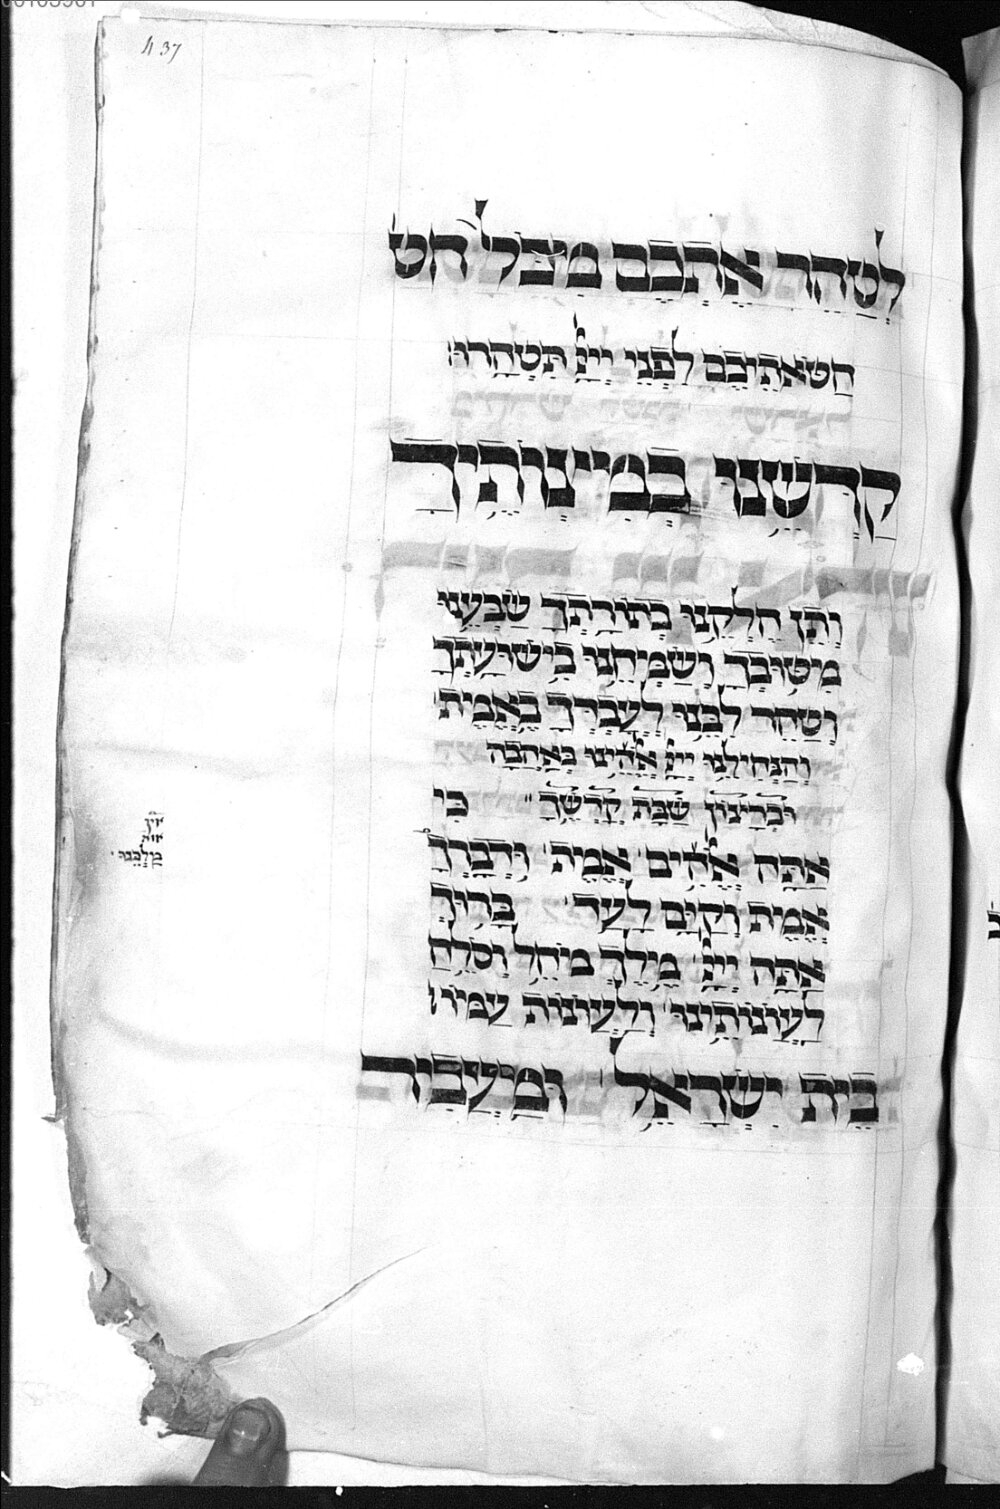 437
לְטַהֵר אֶתְכֶם מִכָּל חט
חַטֹּאתֵיכֶם לִפְנֵי יְיָ תִּטְהָרוּ׃
קַדְּשֵׁנוּ בְּמִצְוֹתֶיךָ
וְתֵן חֶלְקֵנוּ בְּתוֹרָתֶךָ שַׂבְּעֵנוּ
מִטּוּבָךְ וְשַׂמְּחֵנוּ בִּישׁוּעָתֶךָ
וְטַהֵר לִבֵּנוּ לְעָבְדְּךָ בֶּאֱמֶת
וְהַנְחִילֵנוּ יְיָ אֱלֹהֵינוּ בְּאַהֲבָה
וּבְרָצוֹן שַׁבַּת קָדְשֶׁךָ כִּי
אַתָּה אֱלֹהִים אֱמֶת וּדְבָרְךָ
אֱמֶת וְקַיָּם לָעַד בָּרוּךְ
אַתָּה יְיָ מֶלֶךְ מוֹחֵל וְסוֹלֵחַ
לַעֲוֹנוֹתֵינוּ וְלַעֲוֹנוֹת עַמּוֹ
בֵּית יִשְׂרָאֵל וּמַעֲבִיר
מַלְכֵּנוּ